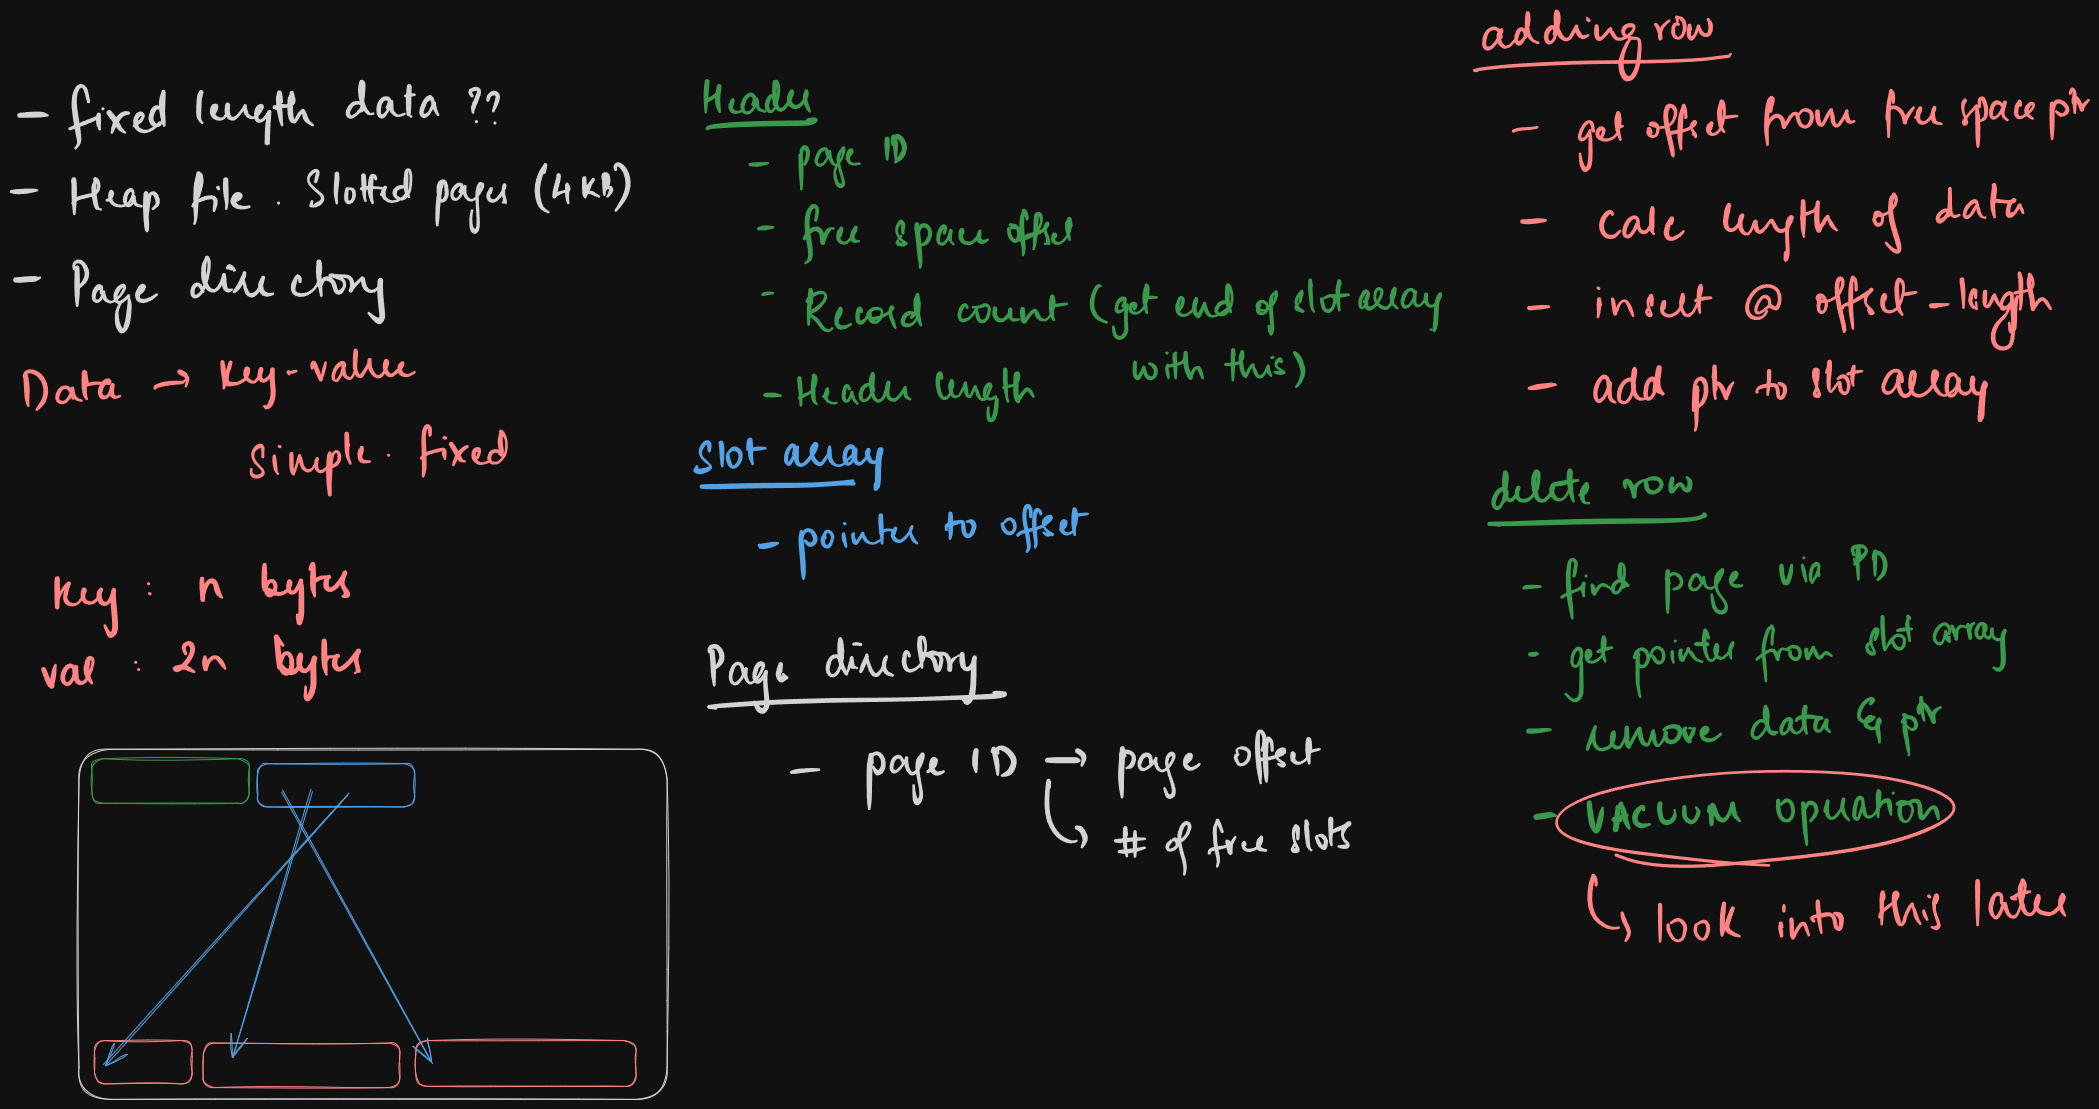 - fixed length data ??
- Heap file. Slotted pages (4 KB)
- Page directory
Data → key-value
simple. fixed
key : n bytes
val : 2n bytes
Header
- page ID
- free space offset
- Record count (get end of slot array
with this)
- Header length
Slot array
- pointer to offset
Page directory
- page ID → page offset
↳ # of free slots
adding row
- get offset from free space ptr
- calc length of data
- insert @ offset - length
- add ptr to slot array
delete row
- find page via PD
- get pointer from slot array
- remove data & ptr
- VACUUM operation
↳ look into this later